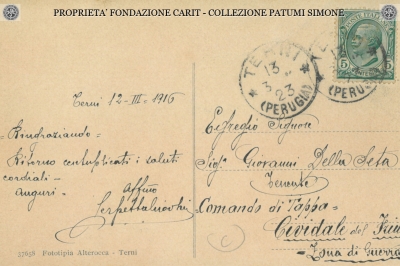 PROPRIETA' FONDAZIONE CARIT - COLLEZIONE PATUMI SIMONE
Terni 12-III-1916
Ringraziando -
Ritorno centuplicati i saluti
cordiali -
auguri -
affmo
TERNI
13
3
23
(PERUGIA)
POSTE ITALIANE
5
5
(PERUGIA)
Egregio Signor
Sigr Giovanni Della Seta
Tenente
Comando di Tappa
Cividale del Friuli
Zona di Guerra
C
37658 - Fototipia Alterocca - Terni